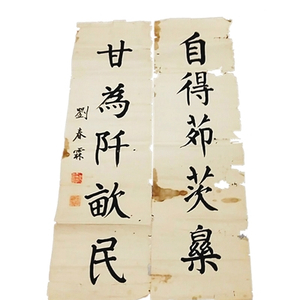 自得茆茨㬎
甘為阡畝民
劉春霖